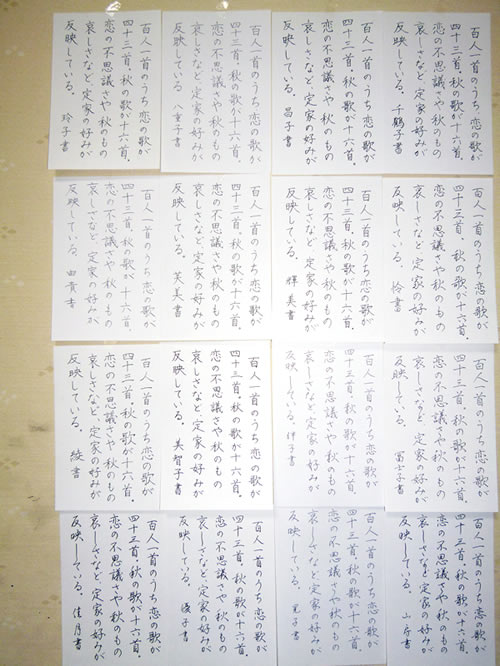 百人一首のうち恋の歌が
四十三首、秋の歌が十六首。
恋の不思議さや秋のもの
哀しさなど、定家の好みが
反映している。 千鶴子書
百人一首のうち恋の歌が
四十三首、秋の歌が十六首。
恋の不思議さや秋のもの
哀しさなど、定家の好みが
反映している。 昌子書
百人一首のうち恋の歌が
四十三首、秋の歌が十六首。
恋の不思議さや秋のもの
哀しさなど、定家の好みが
反映している 八重子書
百人一首のうち恋の歌が
四十三首、秋の歌が十六首。
恋の不思議さや秋のもの
哀しさなど、定家の好みが
反映している。 玲子書
百人一首のうち恋の歌が
四十三首、秋の歌が十六首。
恋の不思議さや秋のもの
哀しさなど、定家の好みが
反映している。 書
百人一首のうち恋の歌が
四十三首、秋の歌が十六首。
恋の不思議さや秋のもの
哀しさなど、定家の好みが
反映している。 輝美書
百人一首のうち恋の歌が
四十三首、秋の歌が十六首。
恋の不思議さや秋のもの
哀しさなど、定家の好みが
反映している。 芙美書
百人一首のうち恋の歌が
四十三首、秋の歌が十六首。
恋の不思議さや秋のもの
哀しさなど、定家の好みが
反映している。
百人一首のうち恋の歌が
四十三首、秋の歌が十六首。
恋の不思議さや秋のもの
哀しさなど、定家の好みが
反映している。 冨士子書
百人一首のうち恋の歌が
四十三首、秋の歌が十六首。
恋の不思議さや秋のもの
哀しさなど、定家の好みが
反映している。 律子書
百人一首のうち恋の歌が
四十三首、秋の歌が十六首。
恋の不思議さや秋のもの
哀しさなど、定家の好みが
反映している。 美智子書
百人一首のうち恋の歌が
四十三首、秋の歌が十六首。
恋の不思議さや秋のもの
哀しさなど、定家の好みが
反映している。 綾書
百人一首のうち恋の歌が
四十三首、秋の歌が十六首。
恋の不思議さや秋のもの
哀しさなど、定家の好みが
反映している。
百人一首のうち恋の歌が
四十三首、秋の歌が十六首。
恋の不思議さや秋のもの
哀しさなど、定家の好みが
反映している。
百人一首のうち恋の歌が
四十三首、秋の歌が十六首。
恋の不思議さや秋のもの
哀しさなど、定家の好みが
反映している。
百人一首のうち恋の歌が
四十三首、秋の歌が十六首。
恋の不思議さや秋のもの
哀しさなど、定家の好みが
反映している。 佳月書